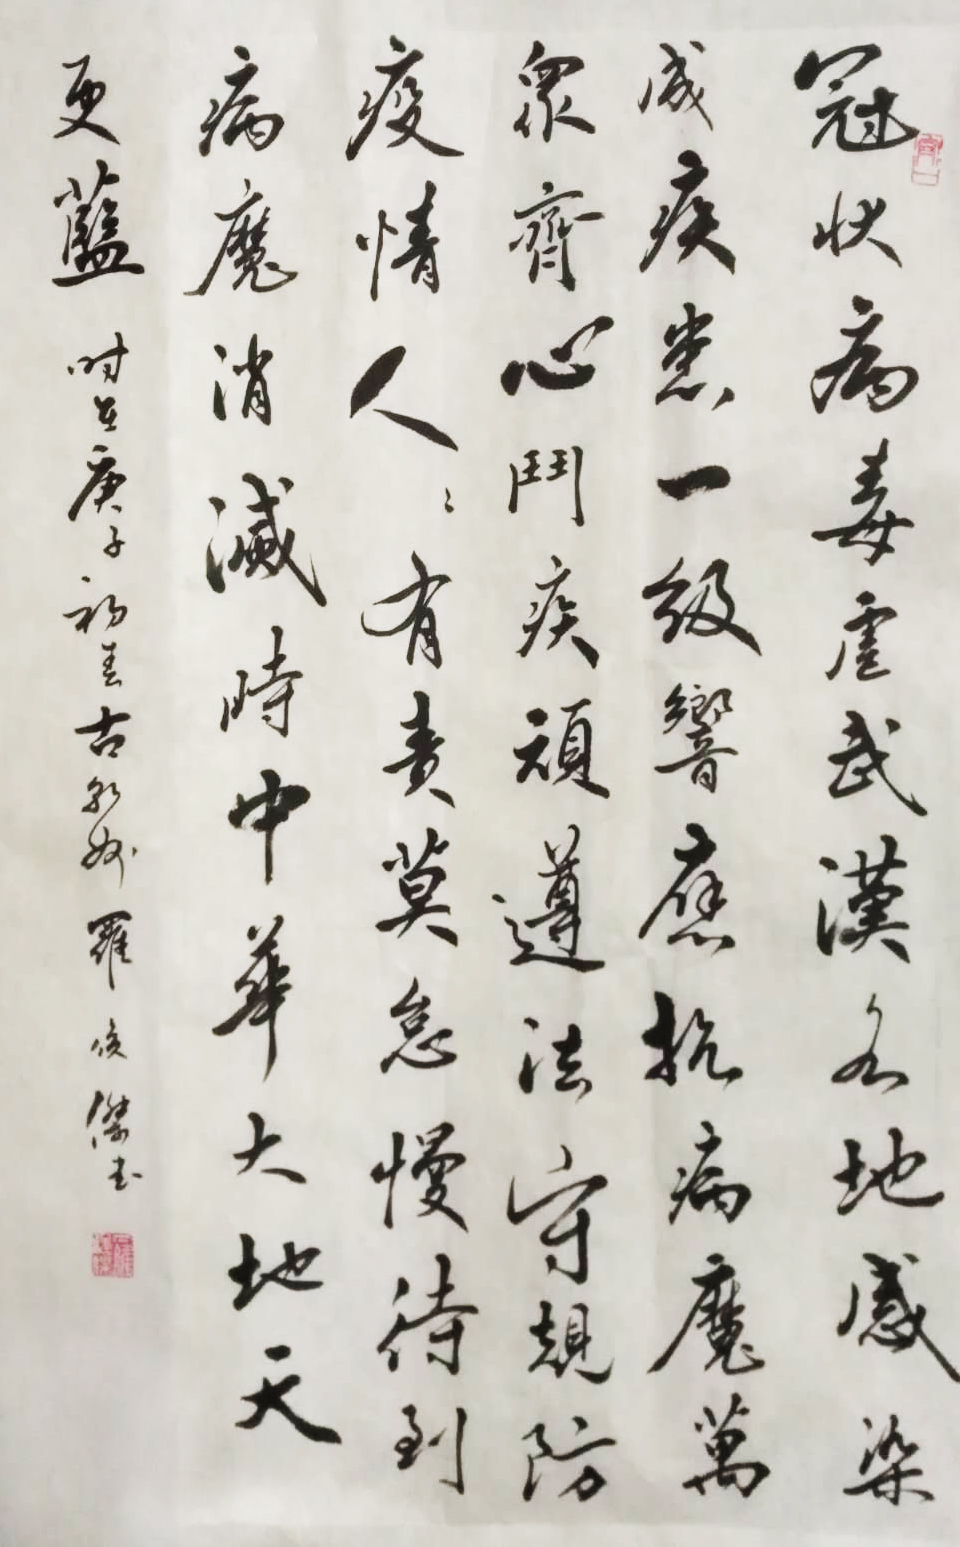 冠状病毒虐武漢各地感染
成疾患一級響應抗病魔萬
眾齊心鬥疾頑遵法守規防
疫情人々有責莫怠慢待到
病魔消滅時中華大地天
更藍
时在庚子初春古郢州羅俊傑书